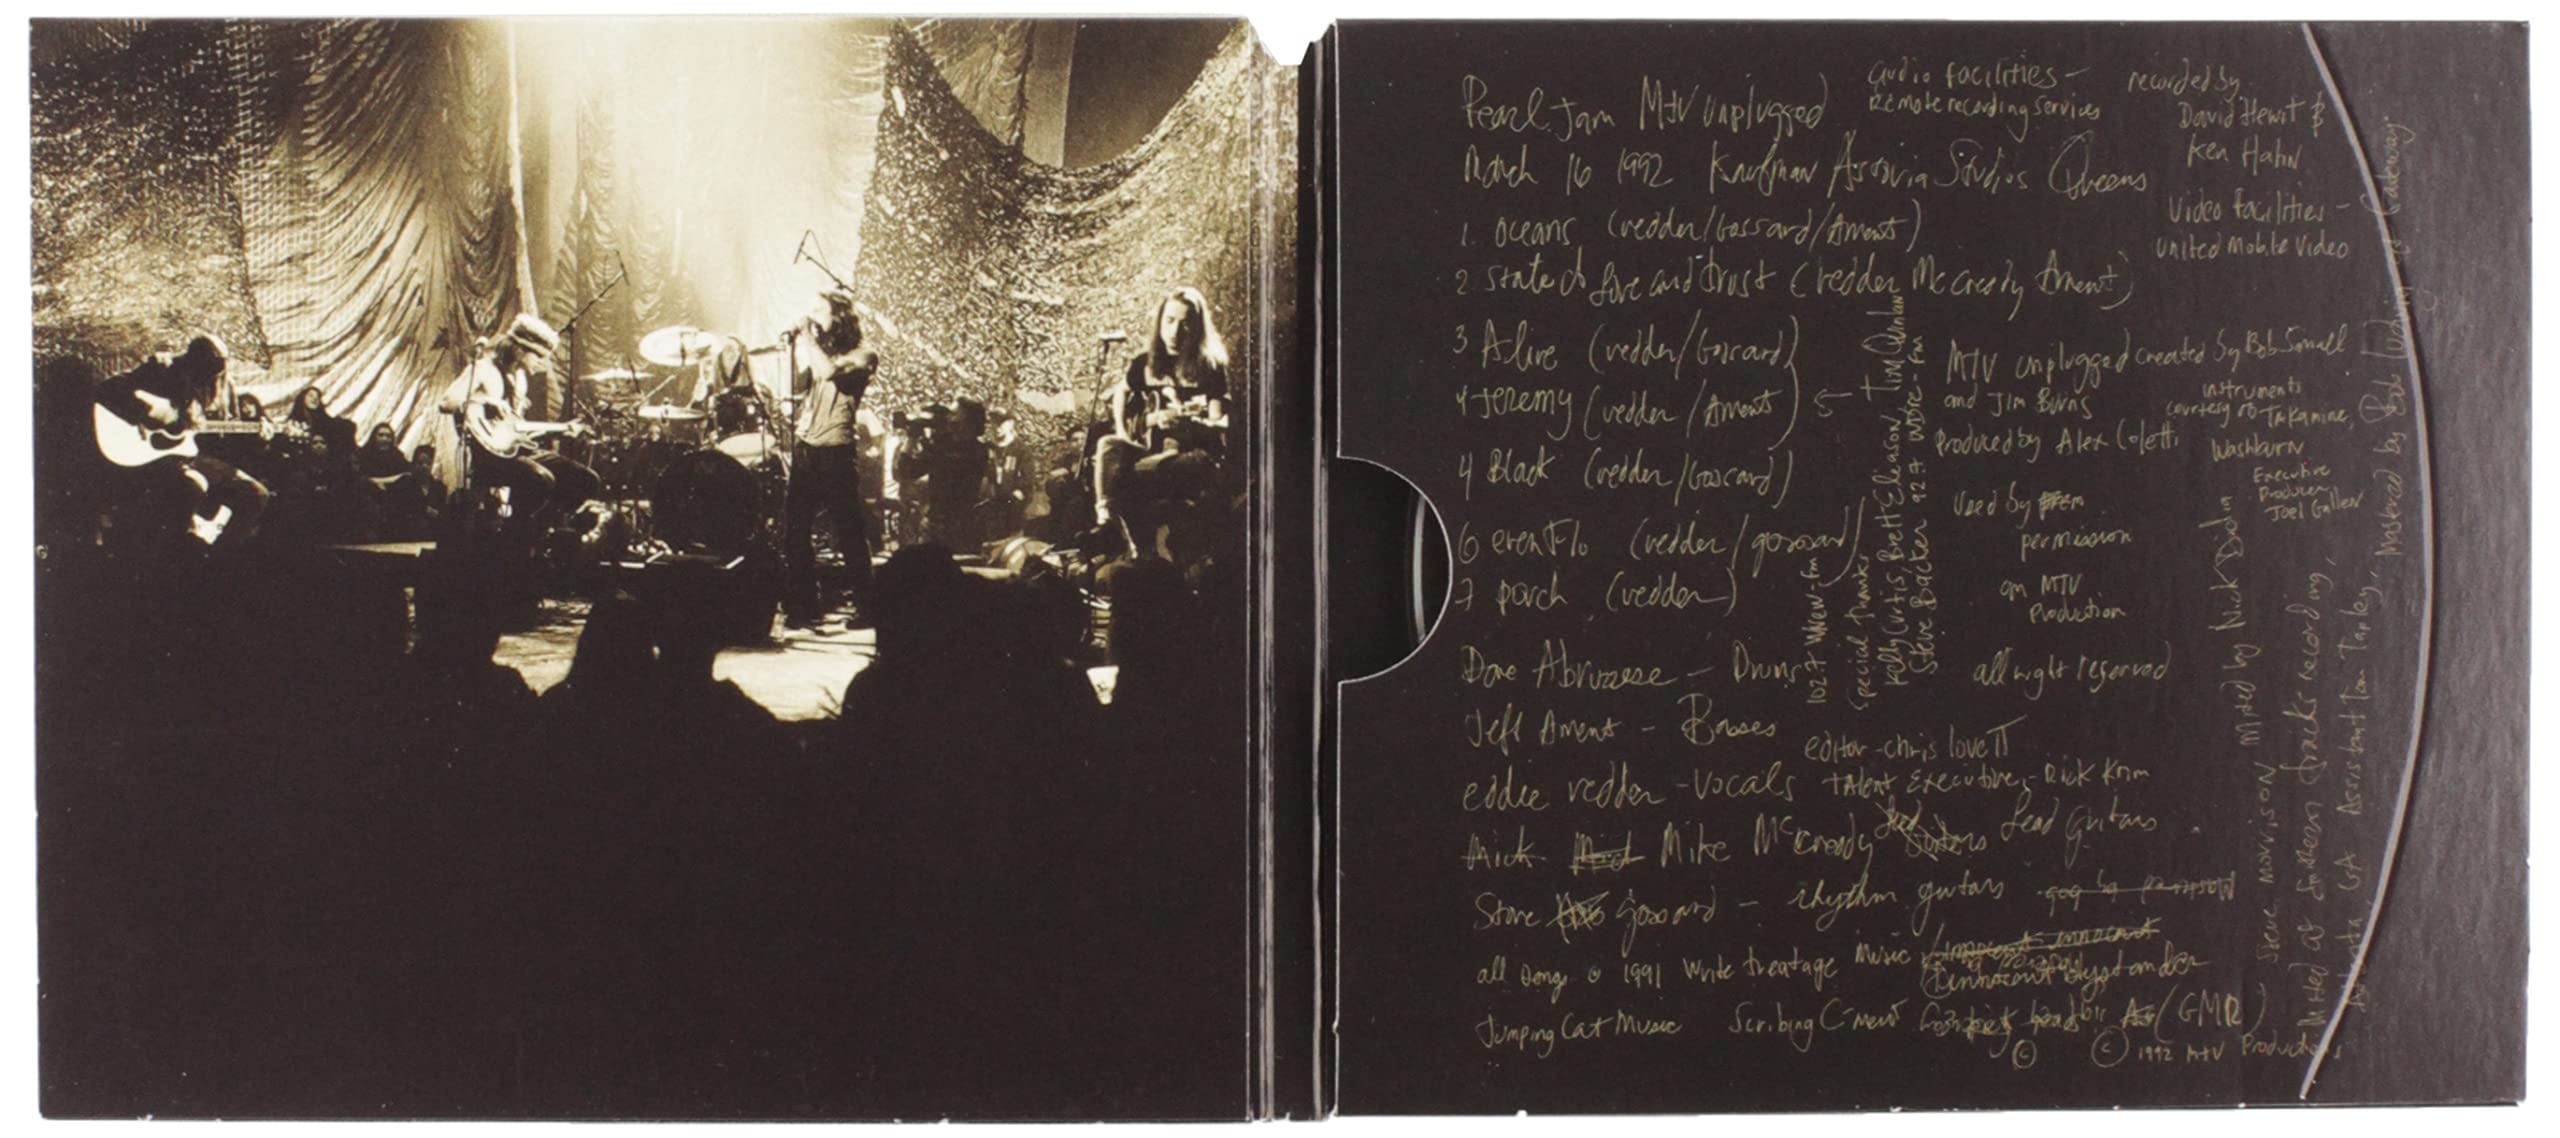 Pearl Jam MTV unplugged
March 16 1992 Kaufman Astoria Studios Queens
1. oceans (vedder/Gossard/Ament)
2. state of love and trust (vedder McCready Ament)
3 Alive (vedder/Gossard)
4 Jeremy (vedder/Ament)
4 Black (vedder/Gossard)
6 evenflo (vedder/gossard)
7 porch (vedder)
Dave Abruzzese - Drums
Jeff Ament - Basses
eddie vedder - vocals
Mick Mike McCready Lead Guitars
Stone Gossard - rhythm guitars
all songs © 1991 Write treatage Music
innocent bystander
Jumping Cat Music Scribing C-ment (GMR)
© © 1992 MTV Productions
audio facilities -
Remote recording services
recorded by
David Hewit &
Ken Hahn
Video facilities -
United Mobile Video
MTV unplugged created by Bob Small
and Jim Burns
Produced by Alex Coletti
instruments
courtesy of Takamine,
Washburn
Executive
Producer
Joel Gallen
Used by
permission
an MTV
Production
all right reserved
editor - chris lovett
Talent Executive - Rick Krim
102.7 WNEW-fm
special thanks
Kelly Curtis Brett Eliason, Tim Quinlan
Steve Backer 92.7 WDRE-fm
Mixed by Nick Didia
Steve morrison
Mixed at Southern tracks recording,
Atlanta GA Assistant Tom Tapley.
Mastered by Bob Ludwig at Gateway